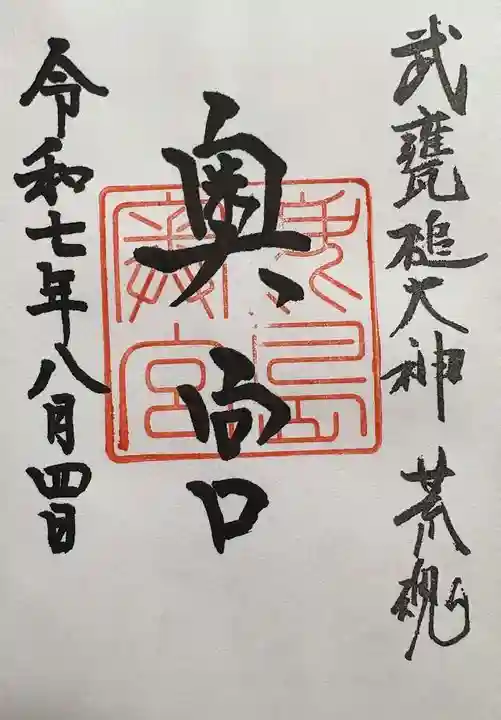 武甕槌大神 荒魂
奥宮
令和七年八月四日
鹿島
奥宮